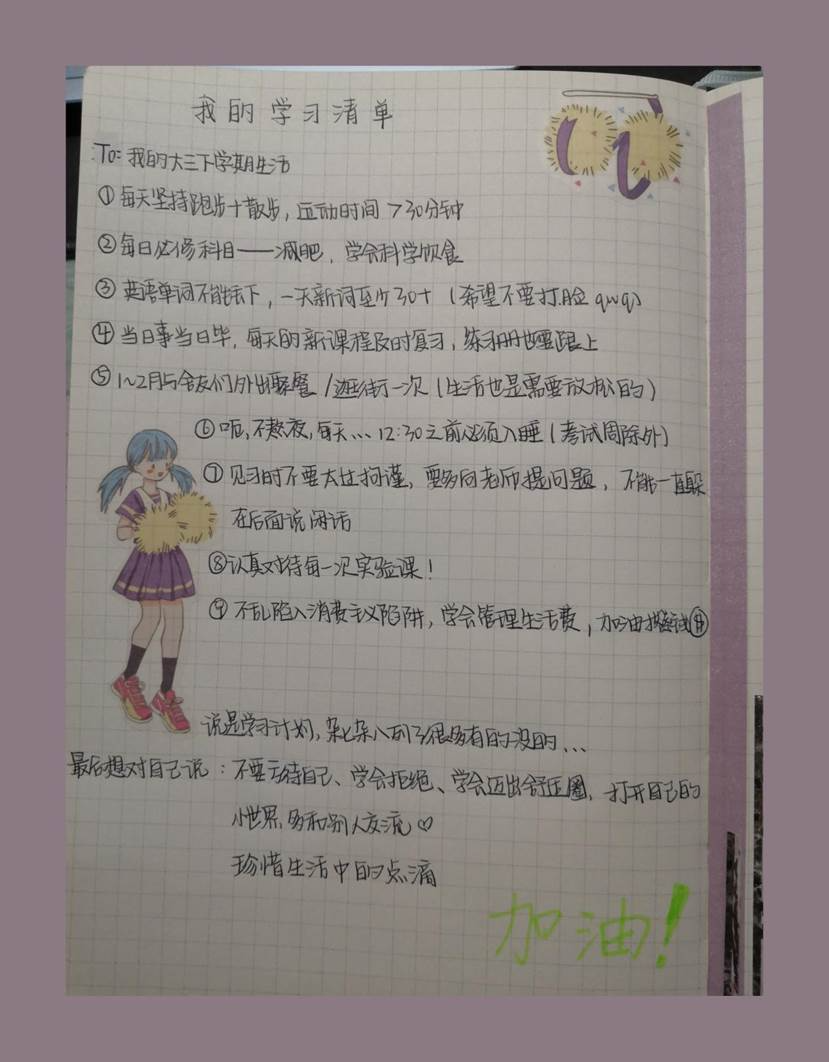 我的学习清单
To: 我的大三下学期生活
①每天坚持跑步+散步,运动时间>30分钟
②每日必修科目——减肥,学会科学饮食
③英语单词不能丢下,一天新词至少30+(希望不要打脸qwq)
④当日事当日毕,每天的新课程及时复习,练习册也要跟上
⑤1~2月与舍友们外出聚餐/逛街一次(生活也是需要放松的)
⑥呃,不熬夜,每天...12:30之前必须入睡(考试周除外)
⑦见习时不要太过拘谨,要多向老师提问题,不能一直躲
在后面说闲话
⑧认真对待每一次实验课!
⑨不乱陷入消费主义陷阱,学会管理生活费,加油
说是学习计划,杂七杂八列了很多有的没的...
最后想对自己说:不要亏待自己、学会拒绝、学会迈出舒适圈,打开自己的
小世界,多和别人交流♡
珍惜生活中的点滴
加油!